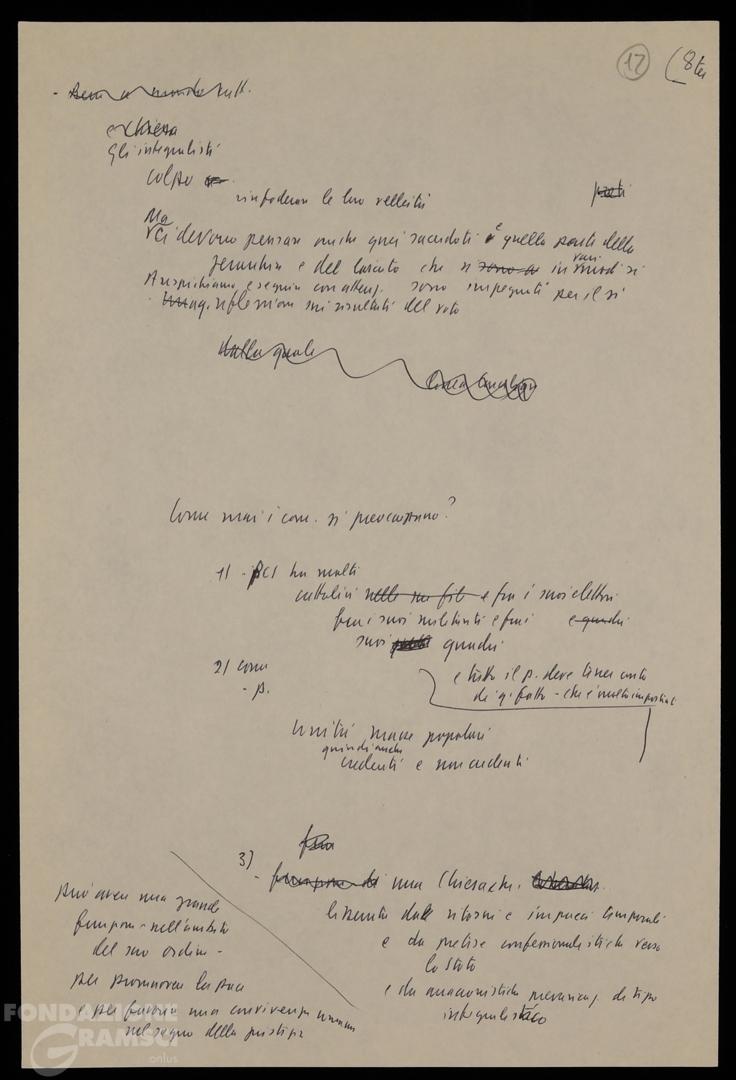 12 (8 ter
e Chiesa
Gli integralisti
colpo
rinfoderare le loro velleità
Ma
ci devono pensare anche quei sacerdoti e quella parte della
gerarchia e del laicato che si in vari modi si
Auspichiamo e seguiamo con attenz. sono impegnati per il sì
riflessione sui risultati del voto
dalla quale
Come mai i com. si preoccupano?
1) - PCI ha molti
cattolici nelle sue file e fra i suoi elettori
fra i suoi militanti e fra i e quadri
suoi quadri
2) come
- p.
e tutto il p. deve tener conto
di q. fatto - che è molto important
unità masse popolari
quindi anche
credenti e non credenti
3)
- funzione di una Chiesa che,
liberata dalle ritorni e impacci temporali
e da pretese confessionalistiche verso
lo Stato
e da anacronistiche di tipo
integralistico
può avere una grande
funzione - nell'ambito
del suo ordine -
per promuovere la pace
e per favorire una convivenza umana
nel segno della giustizia
FONDAZIONE
GRAMSCI
onlus